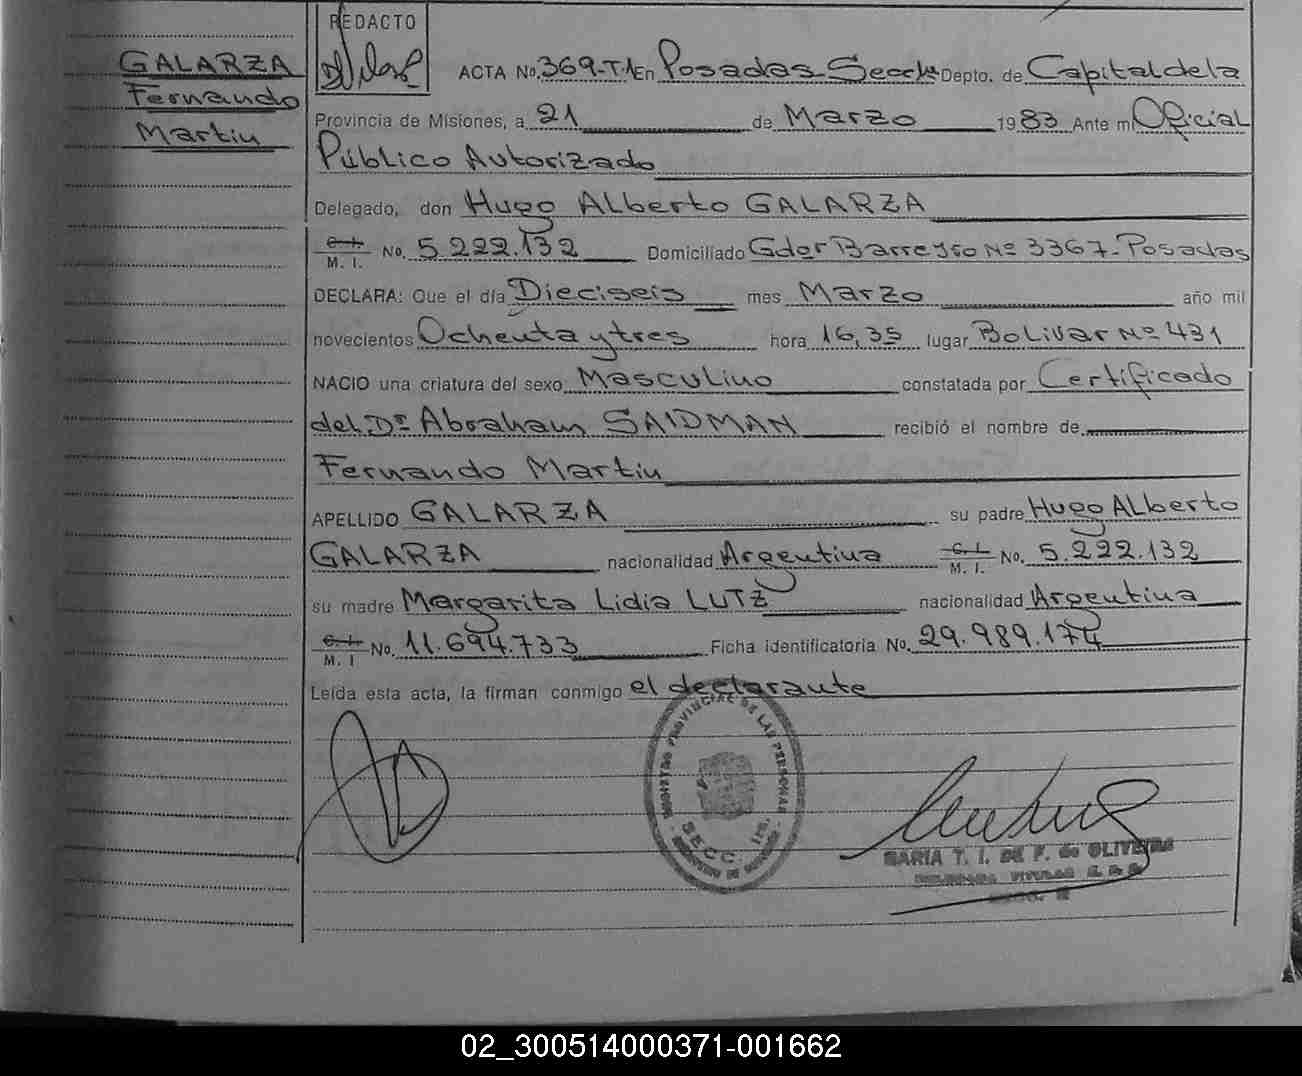 REDACTO
GALARZA
Fernando
Martin
ACTA No. 369-T.1 En Posadas Secc. 1ª Depto. de Capital de la
Provincia de Misiones, a 21 de Marzo 1983 Ante mi Oficial
Público Autorizado
Delegado, don Hugo Alberto GALARZA
C. I. M. I. No. 5.222.132 Domiciliado Gdor Barreyro Nº 3367-Posadas
DECLARA: Que el día Dieciseis mes Marzo año mil
novecientos Ochenta y tres hora 16,35 lugar Bolivar Nº 431
NACIO una criatura del sexo Masculino constatada por Certificado
del Dr. Abraham SAIDMAN recibió el nombre de
Fernando Martin
APELLIDO GALARZA su padre Hugo Alberto
GALARZA nacionalidad Argentina C. I. M. I. No. 5.222.132
su madre Margarita Lidia LUTZ nacionalidad Argentina
C. I. M. I No. 11.694.733 Ficha identificatoria No. 29.989.174
Leída esta acta, la firman conmigo el declarante
REGISTRO PROVINCIAL DE LAS PERSONAS
SECC.
MARIA T. I. DE F. de OLIVEIRA
DELEGADA TITULAR
02_300514000371-001662